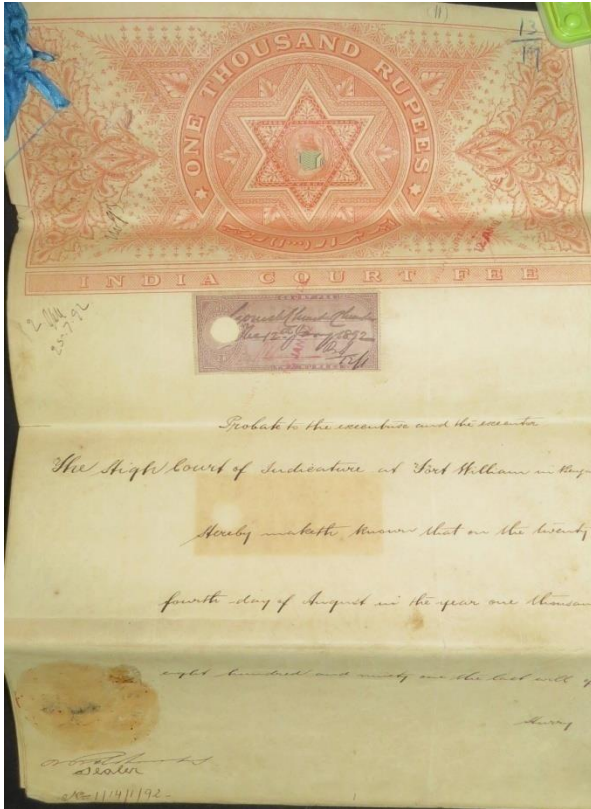 (11)
13
17
ONE THOUSAND RUPEES
INDIA COURT FEE
25-7-92
The 12th Jany 1892
12/1
Probate to the executrix and the executor
The High Court of Judicature at Fort William in Beng
Hereby maketh known that on the twenty
fourth day of August in the year one thousan
eight hundred and ninety one the last will of
Hurry
Sealer
1/14/1/92